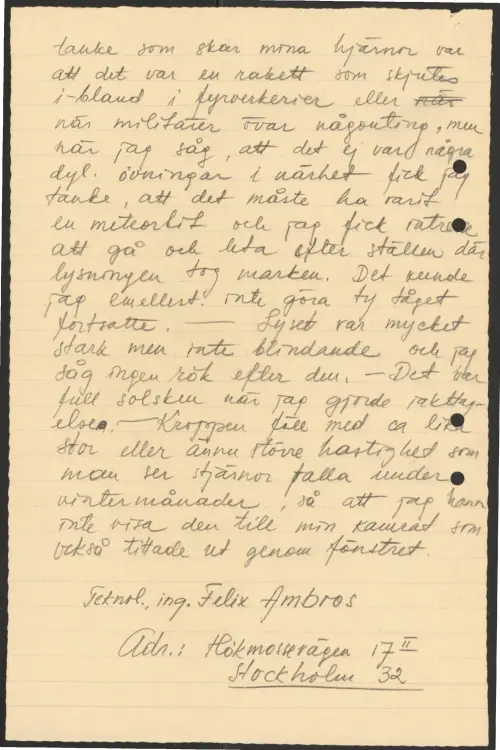 tanke som skar mina hjärnor var
att det var en rakett som skjutes
i-bland i fyrverkerier eller när
när militärer övar någonting, men
när jag såg, att det ej vard några
dyl. övningar i närhet fick jag
tanke, att det måste ha varit
en meteorlit och jag fick intresse
att gå och leta efter ställen där
lysningen tog marken. Det kunde
jag emellert. inte göra ty tåget
fortsatte. — Lyset var mycket
stark men inte blindande och jag
såg ingen rök efter den. — Det var
full solsken når jag gjorde iakttag-
elsen. — Kroppen föll med ca lika
stor eller ännu större hastighet som
man ser stjärnor falla under
vintermånader, så att jag hann
inte visa den till min kamrat som
också tittade ut genom fönstret.
Teknol., ing. Felix Ambros
Adr.: Hökmossevägen 17 II
Stockholm 32